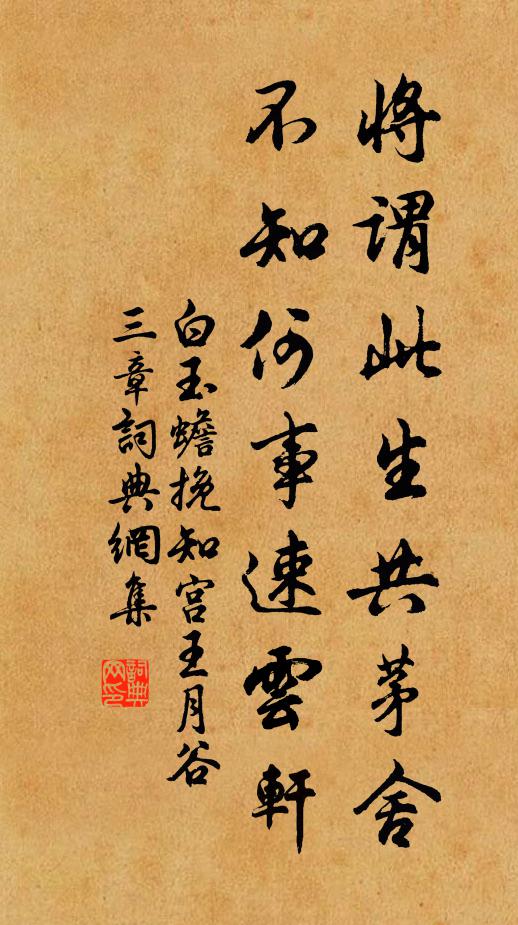 將謂此生共茅舍
不知何事速雲軒
白玉蟾挽知宮王月谷
三章詞典網集
詞典網印